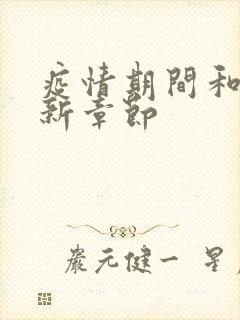 疫情期間和
新章節
嚴元健一 星